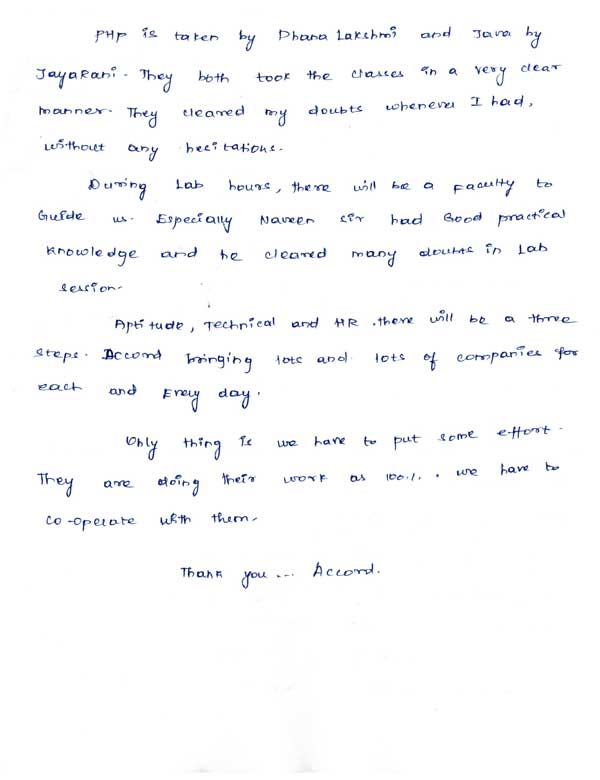 PHP is taken by Dhana Lakshmi and Java by
JayaRani. They both took the classes in a very clear
manner. They cleared my doubts whenever I had,
without any hecitations.
During Lab hours, there will be a Faculty to
Guide us. Especially Naveen sir had Good practical
knowledge and he cleared many doubts in Lab
session.
Aptitude, Technical and HR. there will be a three
steps. Accord bringing lots and lots of companies for
each and Every day.
Only thing is we have to put some effort.
They are doing their work as 100%. we have to
co-operate with them.
Thank you... Accord.